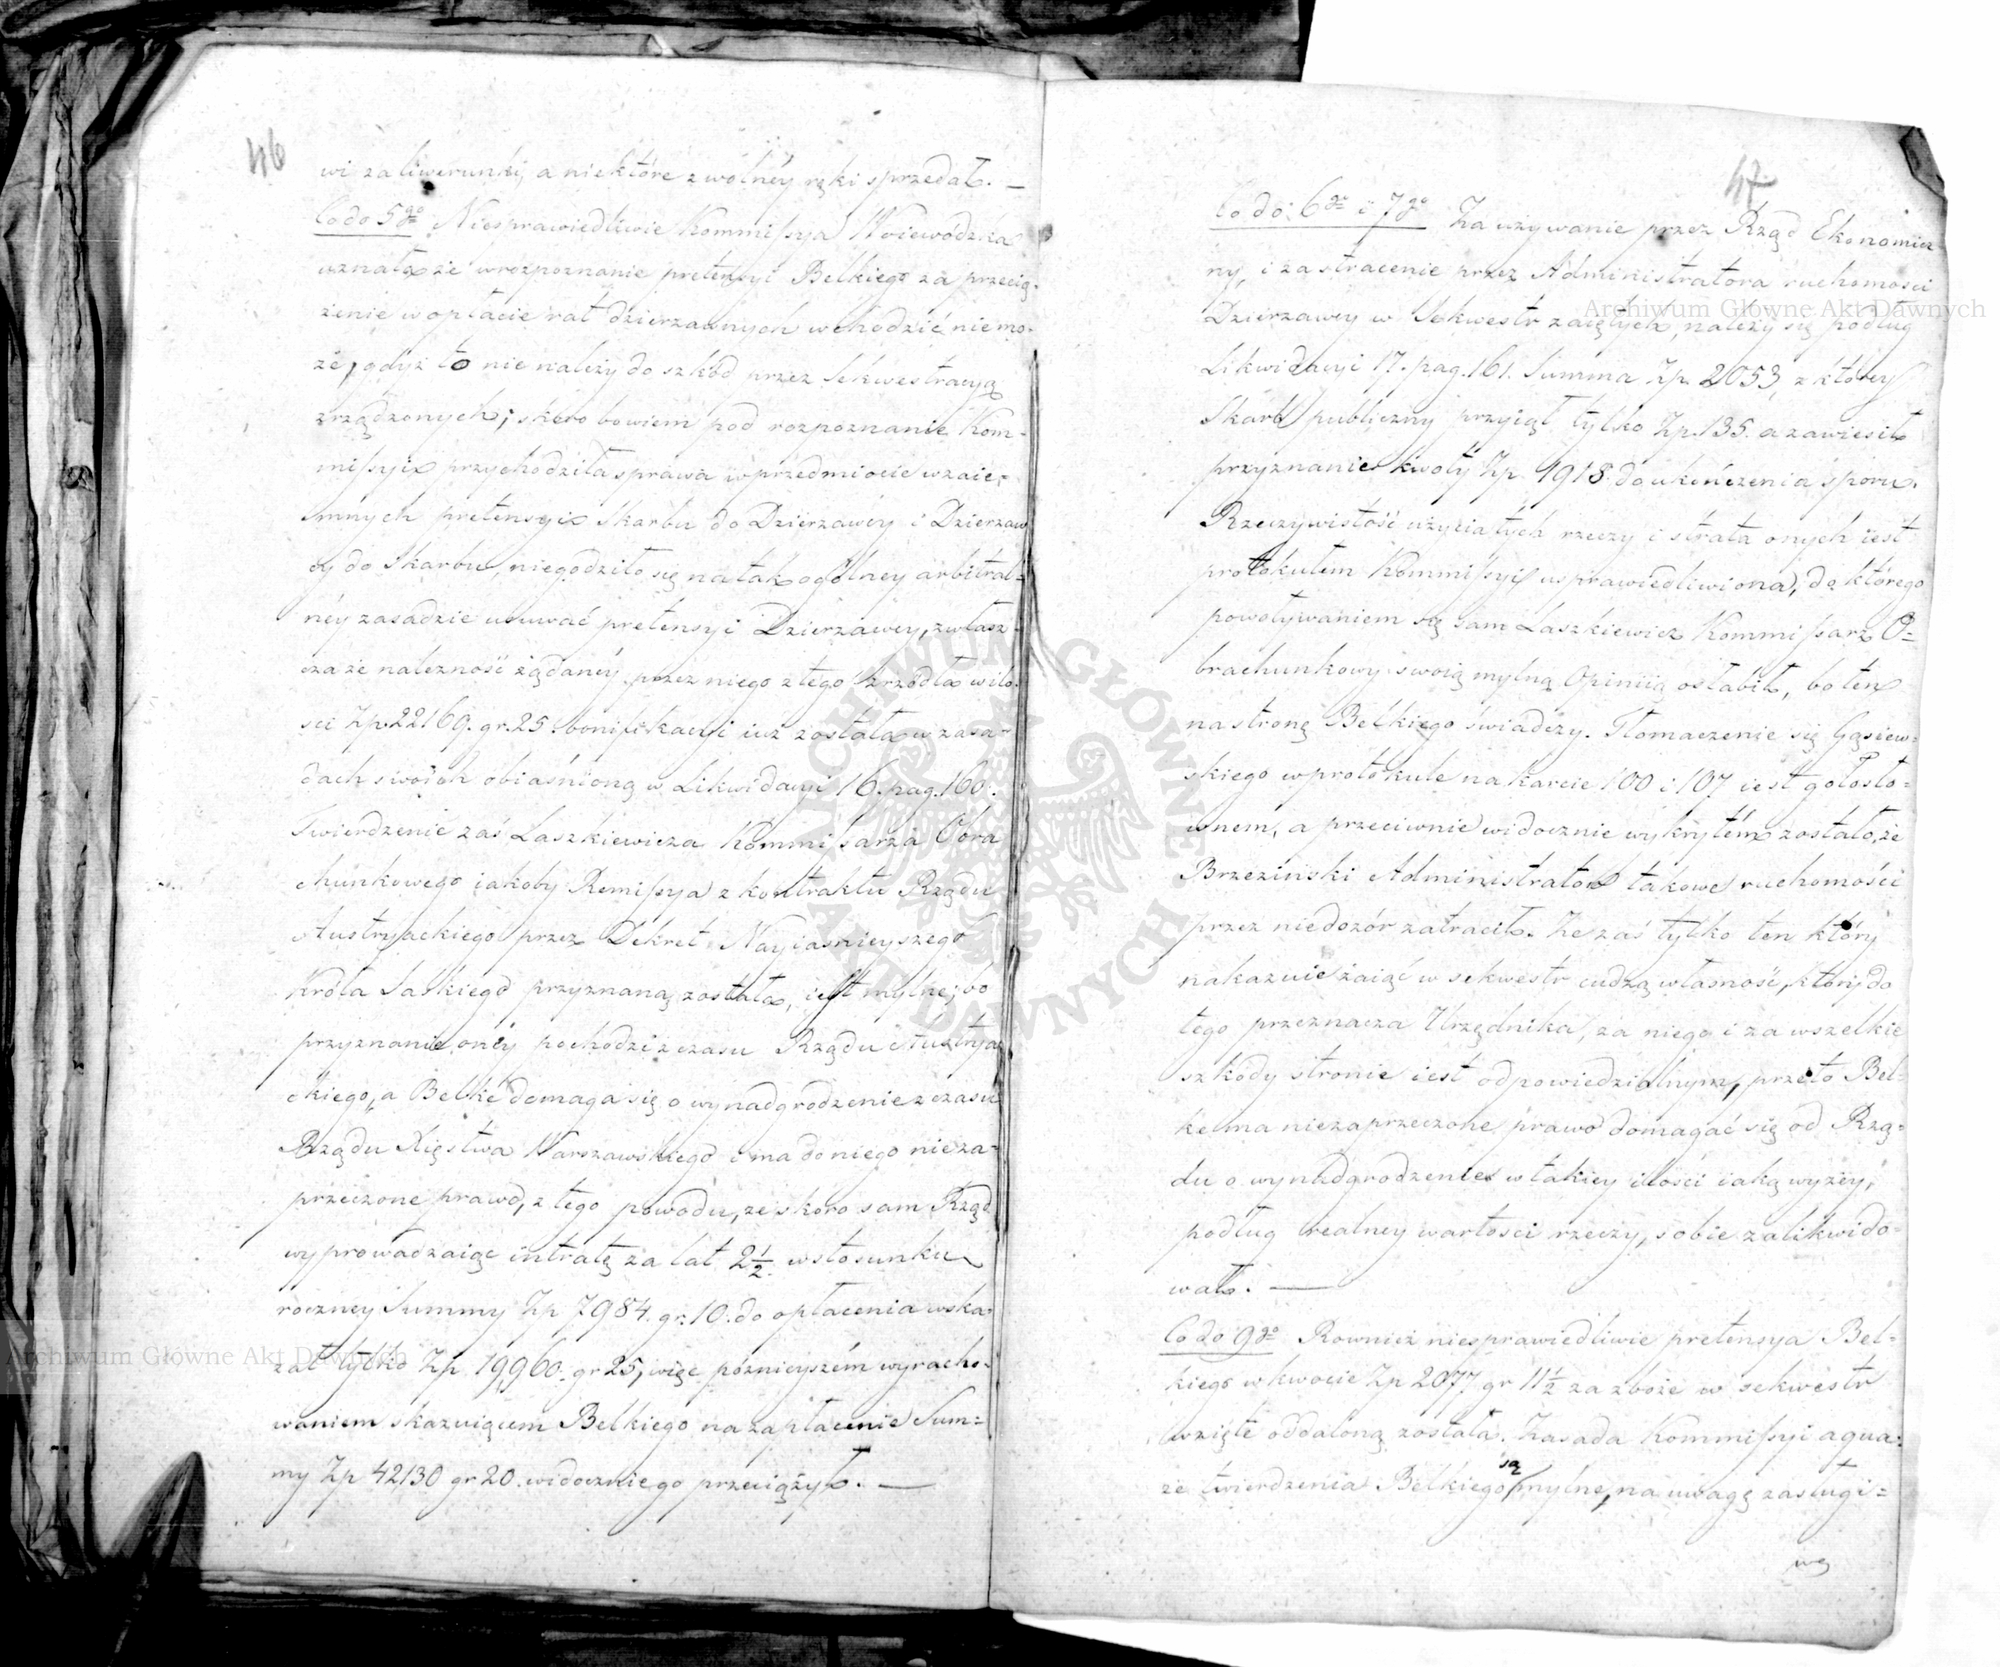 46
wi za liwerunki, a niektóre z wolney ręki sprzedał. —
Co do 5go Niesprawiedliwie Kommissya Woiewódzka
uznała że w rozpoznanie pretensyi Belkiego za przecią-
żenie w opłacie rat dzierzawnych wchodzić niemo-
że, gdyż to nie należy do szkód przez Sekwestracyą
zrządzonych; skoro bowiem pod rozpoznanie Kom-
missyi przychodziła sprawa w przedmiocie wzaie-
mnych pretensyi Skarbu do Dzierzawcy i Dzierzaw
cy do Skarbu, niegodziło się na tak ogólney arbitral-
néy zasadzie usuwać pretensyi Dzierzawcy, zwłasz-
cza że nalezność żądanéy przez niego z tego źrzódła w ilo-
sci Zp. 22169. gr. 25. bonifikacyi iuż została w zasa-
dach swoich obiaśnioną w Likwidacyi 16. pag. 160.
Twierdzenie zaś Laszkiewicza Kommissarza Obra
chunkowego iakoby Remissya z kontraktu Rządu
Austryackiego przez Dekret Nayiasnieyszego
Króla Saskiego przyznaną została, iest mylne; bo
przyznanie onéy pochodzi z czasu Rządu Austrya
ckiego, a Belke domaga się o wynadgrodzenie z czasu
Rządu Xięstwa Warszawskiego i ma do niego nieza-
przeczone prawo, z tego powodu, ze skoro sam Rząd
wyprowadzaiąc intratę za lat 2½. w stosunku
roczney Summy Zp 7984. gr. 10. do opłacenia wska-
zał tylko Zp. 19,960. gr 25, więc póznieyszém wyracho-
waniem skazuiącem Belkiego na zapłacenie Sum-
my Zp 42130 gr 20. widocznie go przeciążył. —
47.
Co do: 6go i 7go Za używanie przez Rząd Ekonomicz
ny, i za stracenie przez Administratora ruchomosci
Dzierzawcy w Sekwestr zaiętych, należy się podług
Likwidacyi 17. pag. 161. Summa Zp. 2053, z którey
Skarb publiczny przyiął tylko Zp. 135. a zawiesił
przyznanie kwoty Zp 1918. do ukończenia sporu.
Rzeczywistość użycia tych rzeczy i strata onych iest
protokułem Kommissyi usprawiedliwiona, do którego
powoływaniem się sam Laszkiewicz Kommissarz O-
brachunkowy swoią mylną Opiniią osłabił, bo ten
na stronę Belkiego świadczy. Tłomaczenie się Gąsiew-
skiego w protokule na karcie 100 i 107 iest gołosło-
wnem, a przeciwnie widocznie wykrytém zostało, że
Brzeziński Administrator takowe ruchomości
przez niedozór zatracił. Ze zaś tylko ten który
nakazuie zaiąć w sekwestr cudzą własność, który do
tego przeznacza Urzędnika, za niego i za wszelkie
szkody stronie iest odpowiedzialnym, przeto Bel-
ke ma niezaprzeczone prawo domagać się od Rzą-
du o wynadgrodzenie w takiey ilości iaką wyzéy,
podług realney wartosci rzeczy, sobie zalikwido-
wał. —
Co do 9go Rownież niesprawiedliwie pretensya Bel-
kiego w kwocie Zp 2077 gr 11½ za zboże w sekwestr
wzięte oddaloną została. Zasada Kommissyi aqua:
ze twierdzenia Belkiego są mylne, na uwagę zasługi-
wę